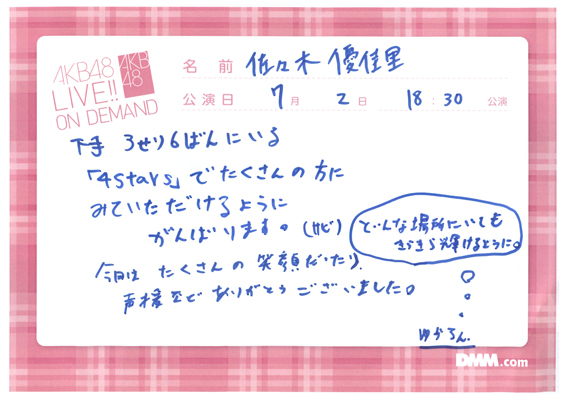 AKB48
LIVE!!
ON DEMAND
AKB
48
名 前 佐々木 優佳里
公演日 7月 2日 18:30 公演
下手 3せり6ばんにいる
「4stars」でたくさんの方に
みていただけるように
がんばります。(サビ)
どんな場所にいても
きらきら輝けるように。
今日は たくさんの 笑顔だったり、
声援など ありがとう ございました。
ゆかるん.
DMM.com